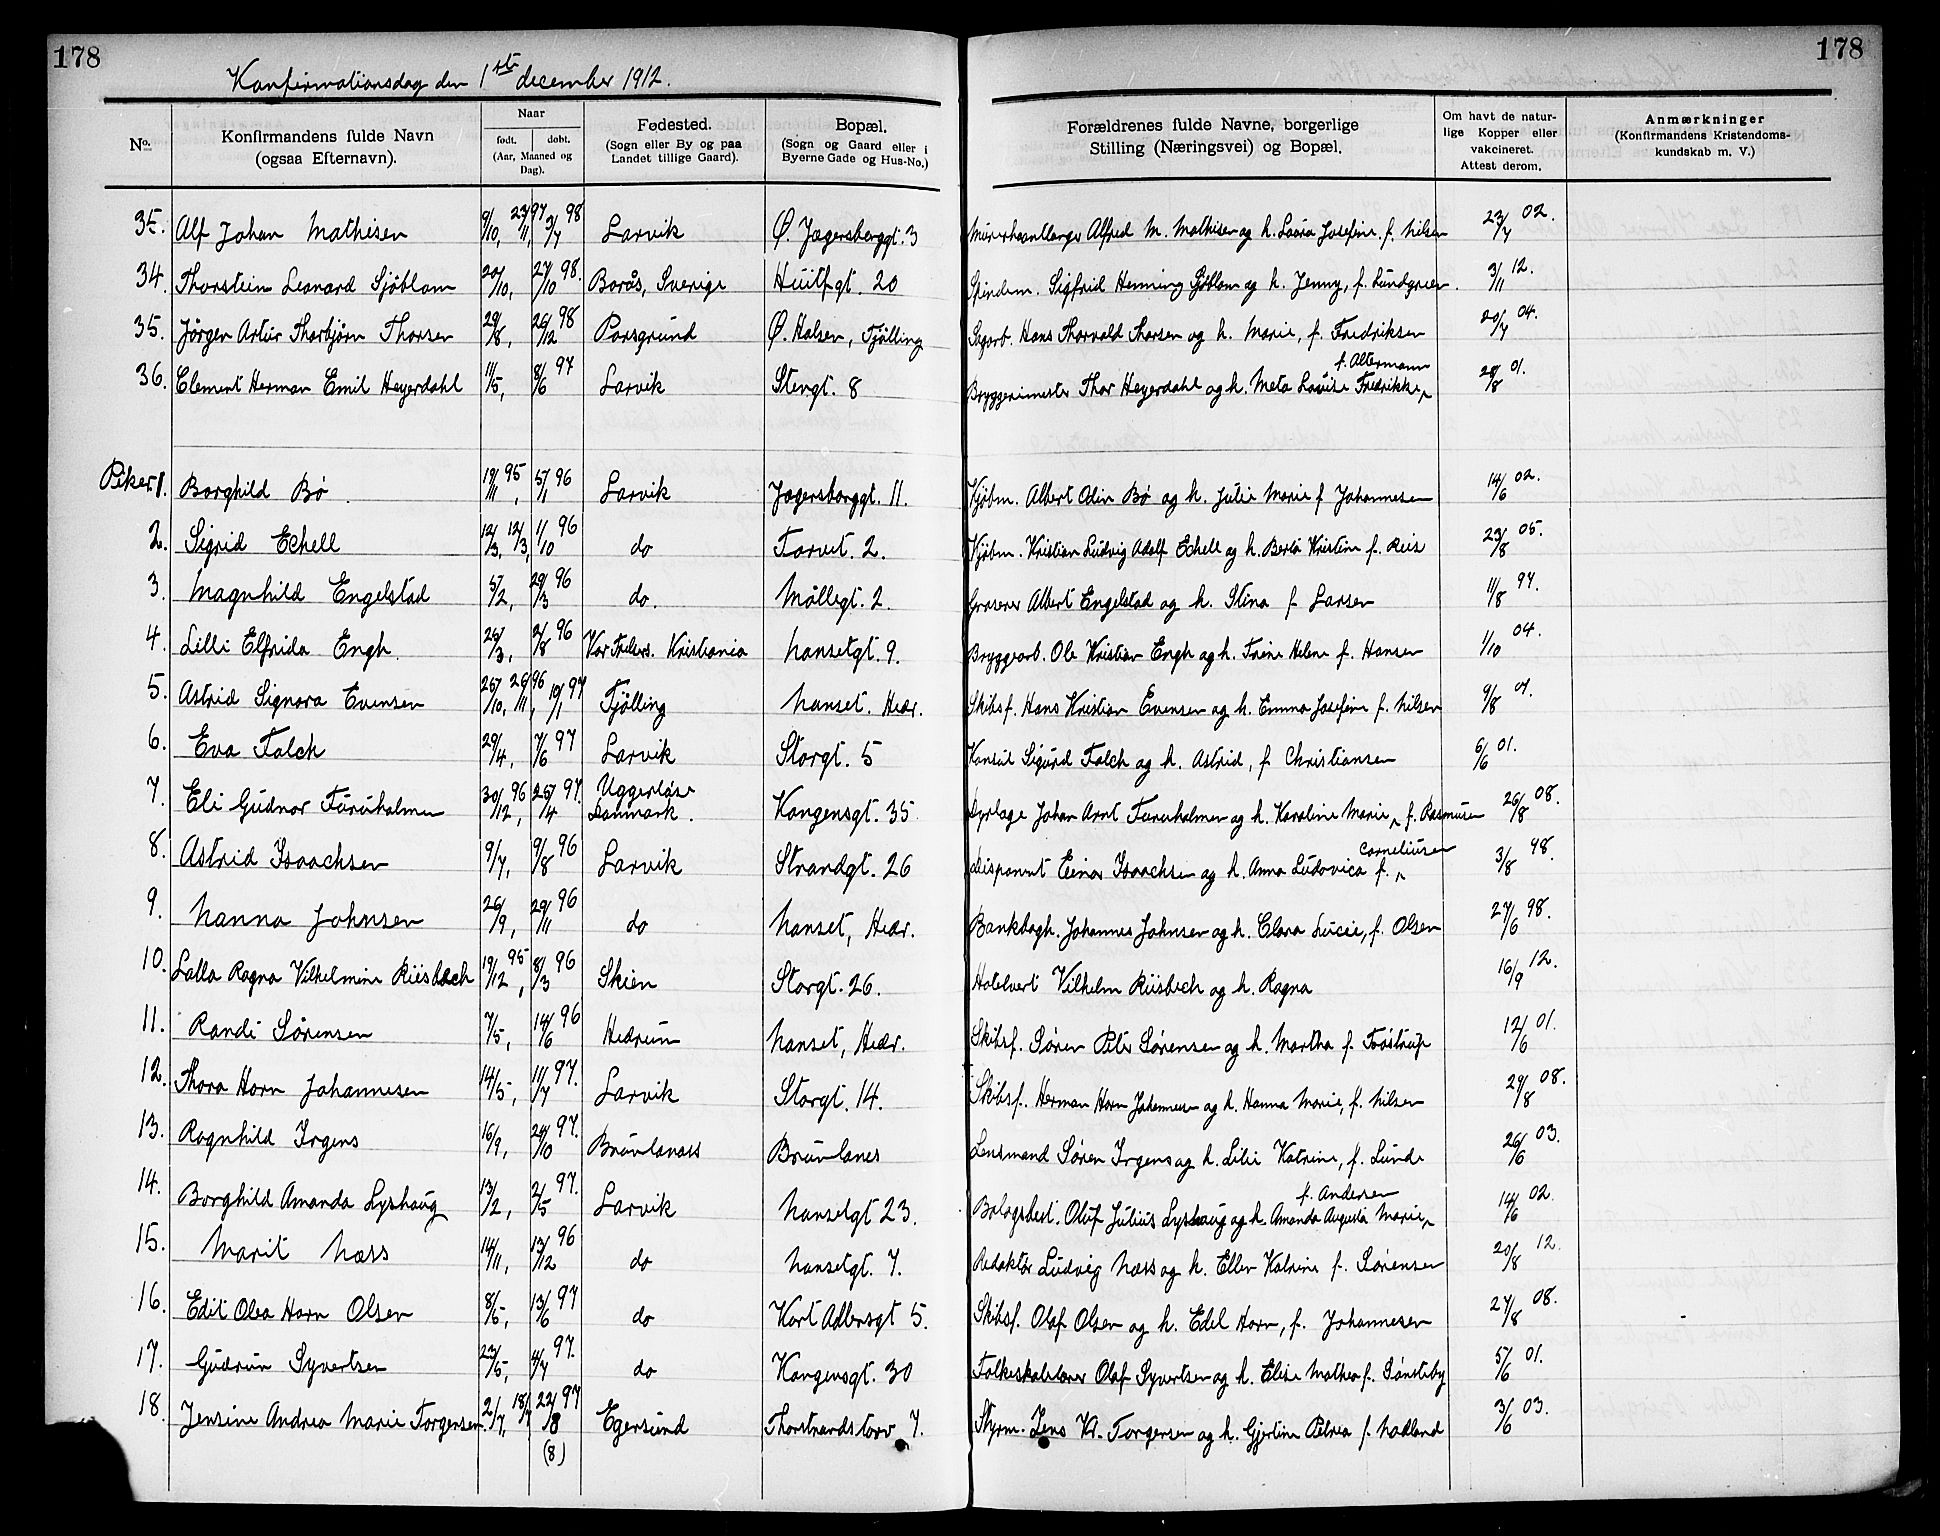 178
178
Konfirmationsdag den 1ste december 1912.
No.
Konfirmandens fulde Navn (ogsaa Efternavn).
Naar
født. døbt.
(Aar, Maaned og Dag).
Fødested.
(Sogn eller By og paa Landet tillige Gaard).
Bopæl.
(Sogn og Gaard eller i Byerne Gade og Hus-No.)
Forældrenes fulde Navne, borgerlige Stilling (Næringsvei) og Bopæl.
Om havt de naturlige Kopper eller vakcineret. Attest derom.
Anmærkninger
(Konfirmandens Kristendomskundskab m. V.)
Alf Johan Mathisen 9/10, 23/11 97 3/7 98 Larvik Ø. Jegersberggt. 3 Murerhaantlanger Alfred M. Mathisen og h. Laura Josefine f. Nilsen 23/7 02.
34. Thorstein Leonard Sjöblom 20/10, 27/10 98. Borås, Sverige Huitfgt. 20 Spindem. Sigfrid Henning Sjöblom og h. Jenny, f. Lundgren. 3/11 12.
35. Jörgen Artur Thorbjörn Thorsen 29/8, 26/12 98 Porsgrund Ø. Halsen, Tjølling Sagarb. Hans Thorvald Thorsen og h. Marie, f. Fredriksen 20/7 04.
36. Clement Herman Emil Heyerdahl 11/5, 8/6 97 Larvik Stengt. 8 Bryggerimester Thor Heyerdahl og h. Meta Louise Fredrikke, f. Altermann 28/8 01.
Piker 1. Borghild Bø 19/11 95, 5/1 96 Larvik Jegersborggt. 11. Kjøbm. Albert Odin Bø og h. Julie Marie f Johannesen 14/6 02.
2. Sigrid Echell 12/3, 12/3, 1/10 96 do Torvet. 2. Kjøbm. Kristian Ludvig Adolf Echell og h. Berta Kristine f. Reis 23/8 05.
3. Magnhild Engelstad 5/2, 29/3 96 do. Möllegt. 2. Graverer Albert Engelstad og h. Stina f Larsen 11/8 97.
4. Lilli Elfrida Engh 2/8 96 Vor Frelsers. Kristiania Nansetgt. 9. Bryggearb. Ole Kristian Engh og h. Trine Helene f. Hansen 1/10 04.
5. Astrid Signora Evensen 25/10, 26/11 96, 10/1 97 Tjølling Nanset. Hedr. Skibsf. Hans Kristian Evensen og h. Emma Josefine f. Nilsen 9/8 01.
6. Eva Falch 29/4, 7/6 97 Larvik Storgt. 5 Konsul Sigurd Falch og h. Astrid, f Christiansen 6/6 01.
7. Eli Gudnor Furuholmen 30/12 96, 25/4 97. Uggerløse Danmark. Kongensgt. 35 Dyrlæge Johan Arnt Furuholmen og h. Karoline Marie, f. Rasmusen 26/8 08.
8. Astrid Isaachsen 9/7, 9/8 96 Larvik Strandgt. 26 disponent Einar Isaachsen og h. Anna Ludovica f. Corneliusen 3/8 98.
9. Nanna Johnsen 26/9, 29/11 96 do Nanset, Hedr. Bankbogh. Johannes Johnsen og h. Clara Lucie, f. Olsen 27/6 98.
10. Lalla Ragna Vilhelmine Riisbech 19/12 95, 8/3 96 Skien Storgt. 26. Hotelvert Vilhelm Riisbech og h. Ragna 16/9 12.
11. Randi Sørensen 7/5, 14/6 96 Hedrum Nanset, Hedr. Skibsf. Søren Peter Sørensen og h. Martha f. Foøstrup 12/6 01.
12. Thora Horn Johannesen 14/5, 11/7 97. Larvik Storgt. 14. Skibsf. Herman Horn Johannesen og h. Hanna Marie, f. Nilsen 29/8 08.
13. Ragnhild Irgens 16/9, 24/10 97. Brunlanæss Brunlanes Lensmand Søren Irgens og h. Lilie Katrine, f. Lunde 26/6 03.
14. Borghild Amanda Lyshaug 13/2, 2/5 97. Larvik Nansetgt 23. Bolagsbest. Oluf Julius Lyshaug og h Amanda Augusta Marie, f. Andersen 14/6 02.
15. Marit Næss 14/11, 13/12 96 do Nansetgt. 7. Redaktør Ludvig Næss og h. Ellen Katrine f. Sörensen 20/8 12.
16. Edit Olea Horn Olsen 8/5, 13/6 97 do Kort Adlersgt 5. Skibsf. Olaf Olsen og h. Edel Horn, f. Johannesen 27/8 08.
17. Gudrun Syvertsen 23/5, 4/7 97. do Kongensgt. 30 Folkeskolelærer Olaf Syvertsen og h. Elise Mathea f. Sønsteby 5/6 01.
18. Jensine Andrea Marie Torgersen 2/7, 18/7 22/8 97 (8) Egersund Thorstrandstorv 7. Styrm. Jens Kr. Torgersen og h. Gjertine Petrea f. Nodland 3/6 03.